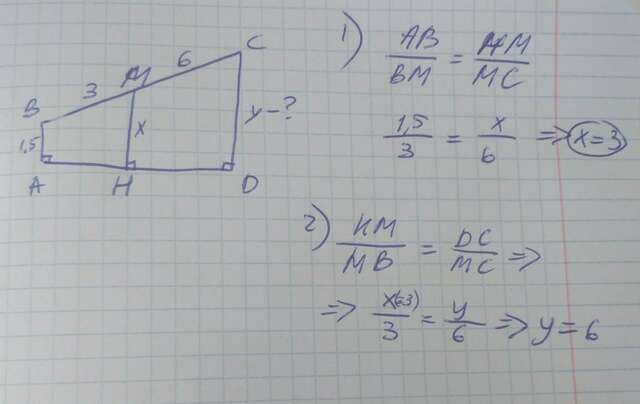 B 3 M 6 C
1,5 x y - ?
A H D
1) AB/BM = HM/MC
1,5/3 = x/6 => x=3
2) HM/MB = DC/MC =>
=> x(=3)/3 = y/6 => y = 6